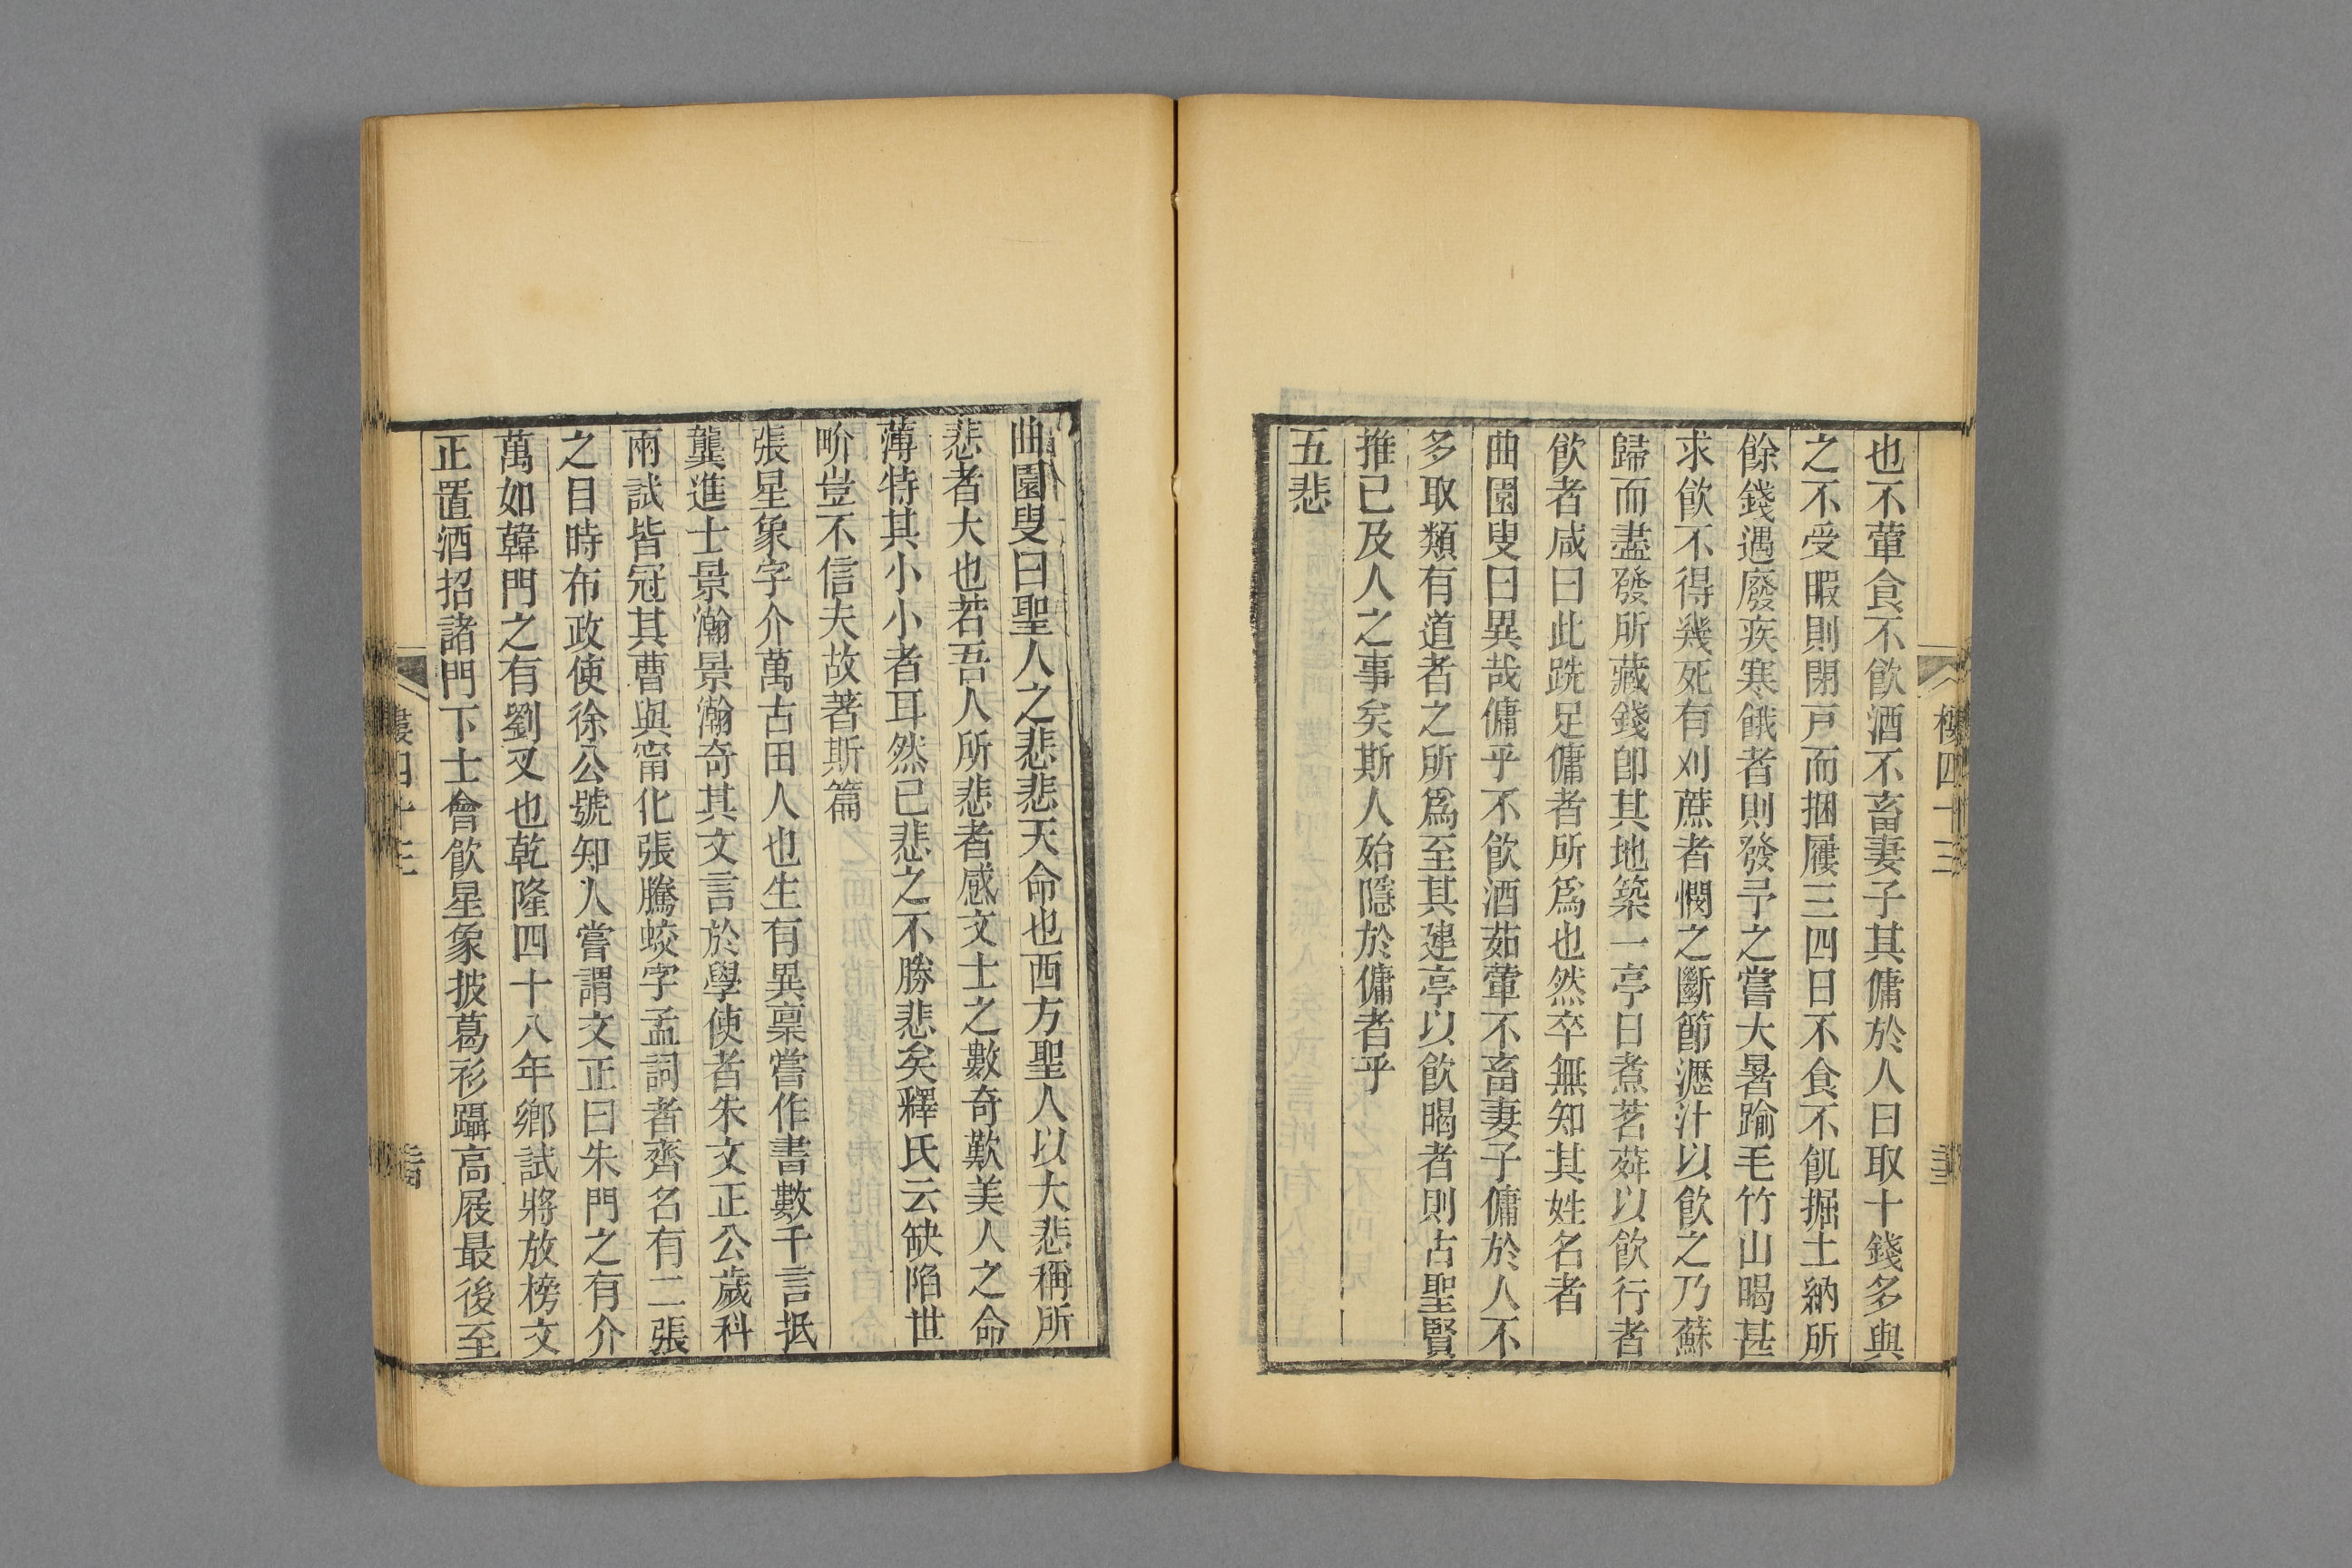 也不葷食不飲酒不畜妻子其傭於人日取十錢多與
之不受暇則閉戸而捆屨三四日不食不飢掘土納所
餘錢遇廢疾寒餓者則發予之嘗大暑踰毛竹山暍甚
求飲不得幾死有刈蔗者憫之斷節瀝汁以飲之乃蘇
歸而盡發所藏錢卽其地築一亭日煮茗荈以飲行者
飲者咸曰此跣足傭者所爲也然卒無知其姓名者
曲園叟曰異哉傭乎不飲酒茹葷不畜妻子傭於人不
多取類有道者之所爲至其建亭以飲暍者則古聖賢
推已及人之事矣斯人殆隱於傭者乎
五悲
曲園叟曰聖人之悲悲天命也西方聖人以大悲稱所
悲者大也若吾人所悲者感文士之數奇歎美人之命
薄特其小小者耳然已悲之不勝悲矣釋氏云缺陷世
畍豈不信夫故著斯篇
張星象字介萬古田人也生有異稟嘗作書數千言抵
龔進士景瀚景瀚奇其文言於學使者朱文正公歲科
兩試皆冠其曹與甯化張騰蛟字孟詞者齊名有二張
之目時布政使徐公號知人嘗謂文正曰朱門之有介
萬如韓門之有劉叉也乾隆四十八年鄉試將放榜文
正置酒招諸門下士會飲星象披葛衫躡高屐最後至
樓四十三